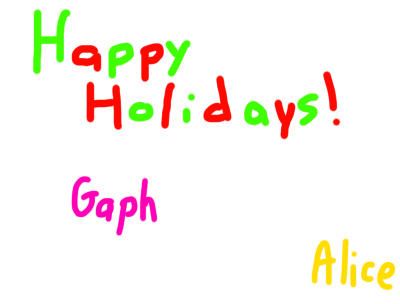 Happy
Holidays!
Gaph
Alice